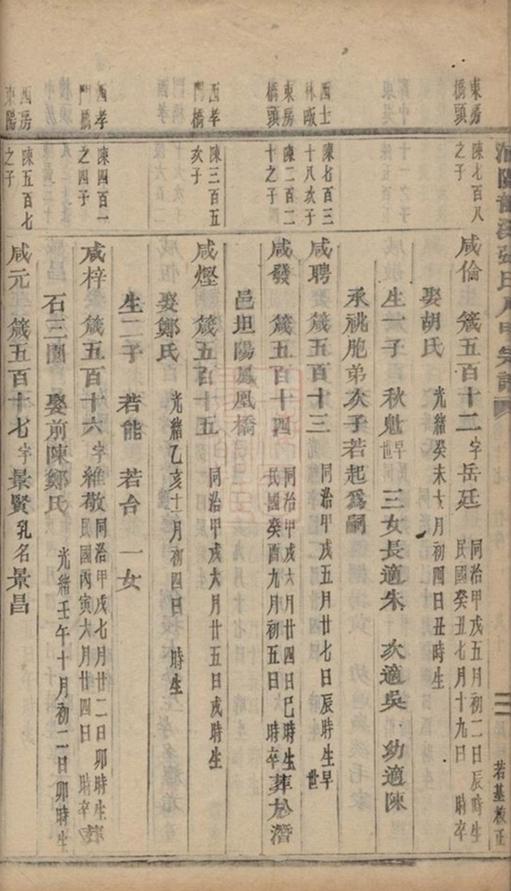 陽龍溪張氏八甲宗譜
三
若基校正
東房橋頭
陳七百八之子
咸倫 箴五百十二 字岳廷 同治甲戌五月初二日辰時生 民國癸丑七月十九日 時卒
娶胡氏 光緒癸未六月初四日丑時生
生一子 秋魁 早世 三女長適朱 次適吳 幼適陳
承祧胞弟次子若起爲嗣
西士林畈
陳七百三十八次子
咸聘 箴五百十三 同治甲戌五月廿七日辰時生早世
東房橋頭
陳二百二十之子
咸發 箴五百十四 同治甲戌六月廿四日巳時生 民國癸酉九月初五日 時卒 葬於潛
邑坦陽鳳凰橋
西孝門橋
陳三百五次子
咸熞 箴五百十五 同治甲戌六月廿五日戌時生
娶鄭氏 光緒乙亥十一月初四日 時生
生二子 若能 若台 一女
西孝門橋
陳四百一之四子
咸梓 箴五百十六 字維敬 同治甲戌七月廿二日卯時生 民國丙寅六月廿四日 時卒 葬
石三園 娶前陳鄭氏 光緒壬午十月初二日卯時生
西房東陽
陳五百七之子
咸元 箴五百十七 字景賢 乳名景昌